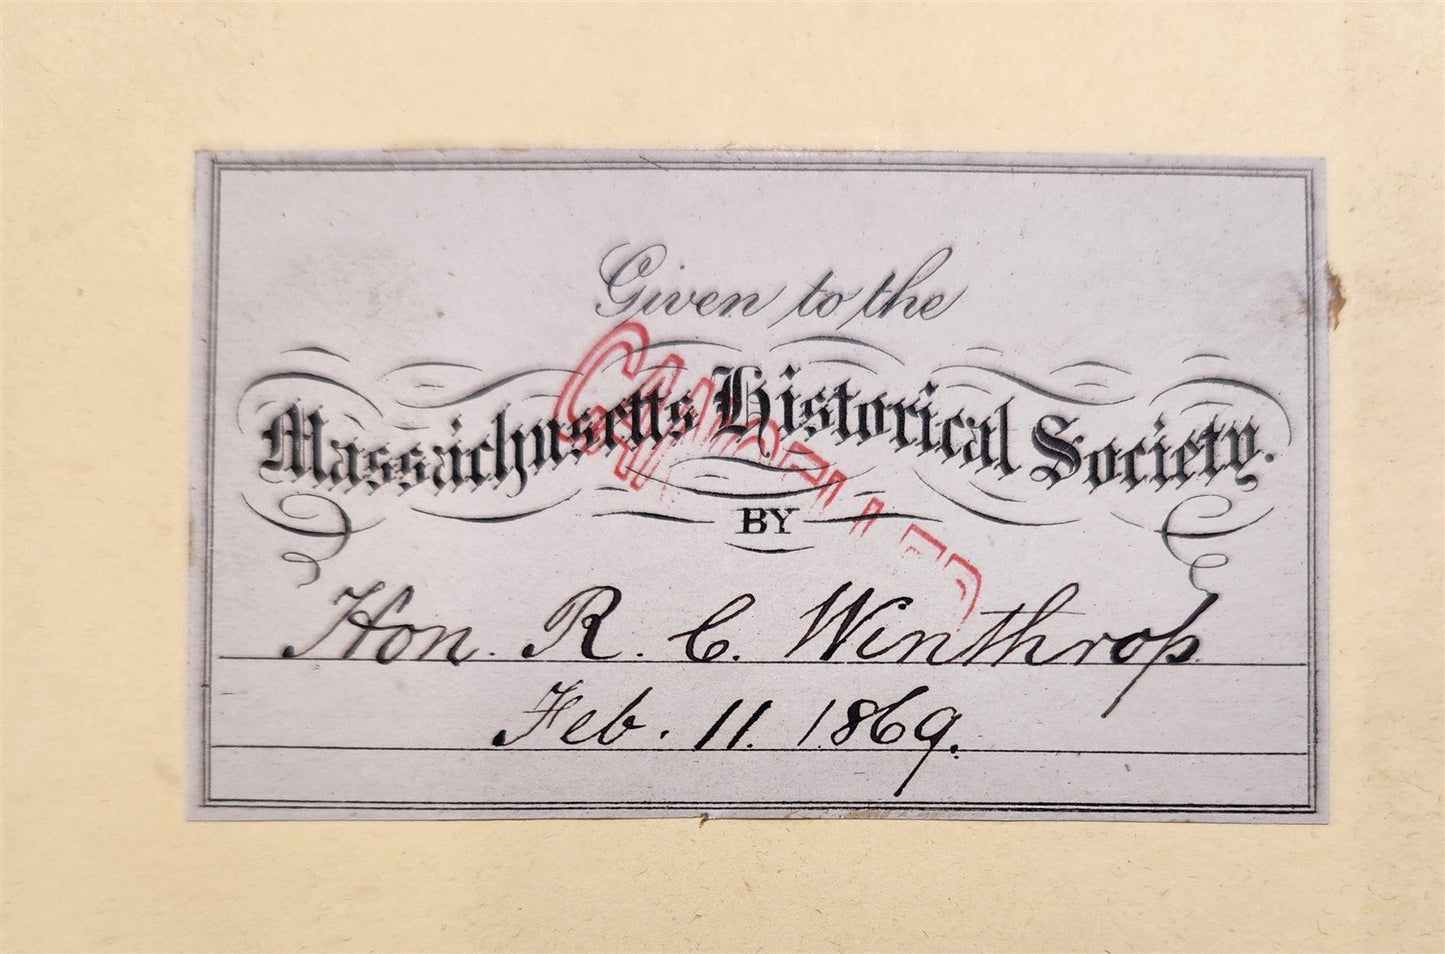 Given to the
Massachusetts Historical Society.
BY
Hon. R. C. Winthrop
Feb. 11. 1869.
CANCELLED